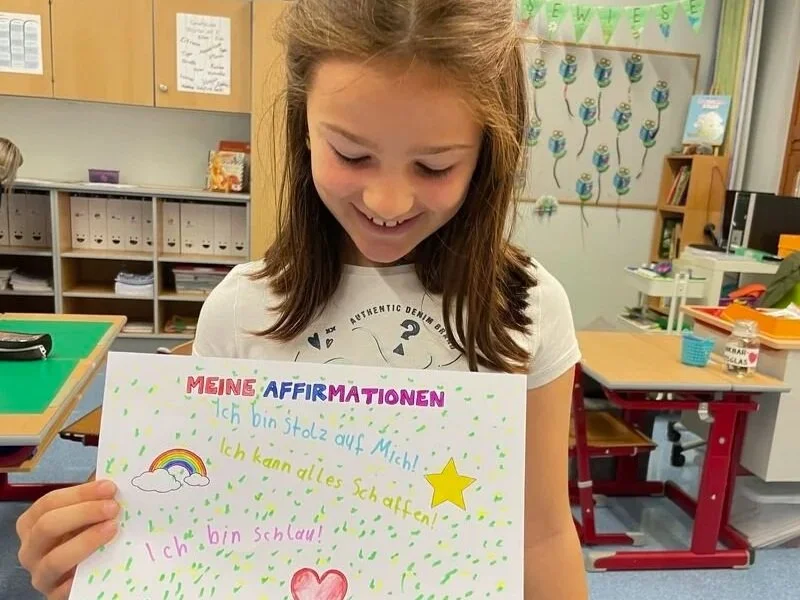 EWIESE
AUTHENTIC DENIM BRA
MEINE AFFIRMATIONEN
Ich bin stolz auf Mich!
Ich kann alles Schaffen!
Ich bin schlau!
NKBAR
GLAS